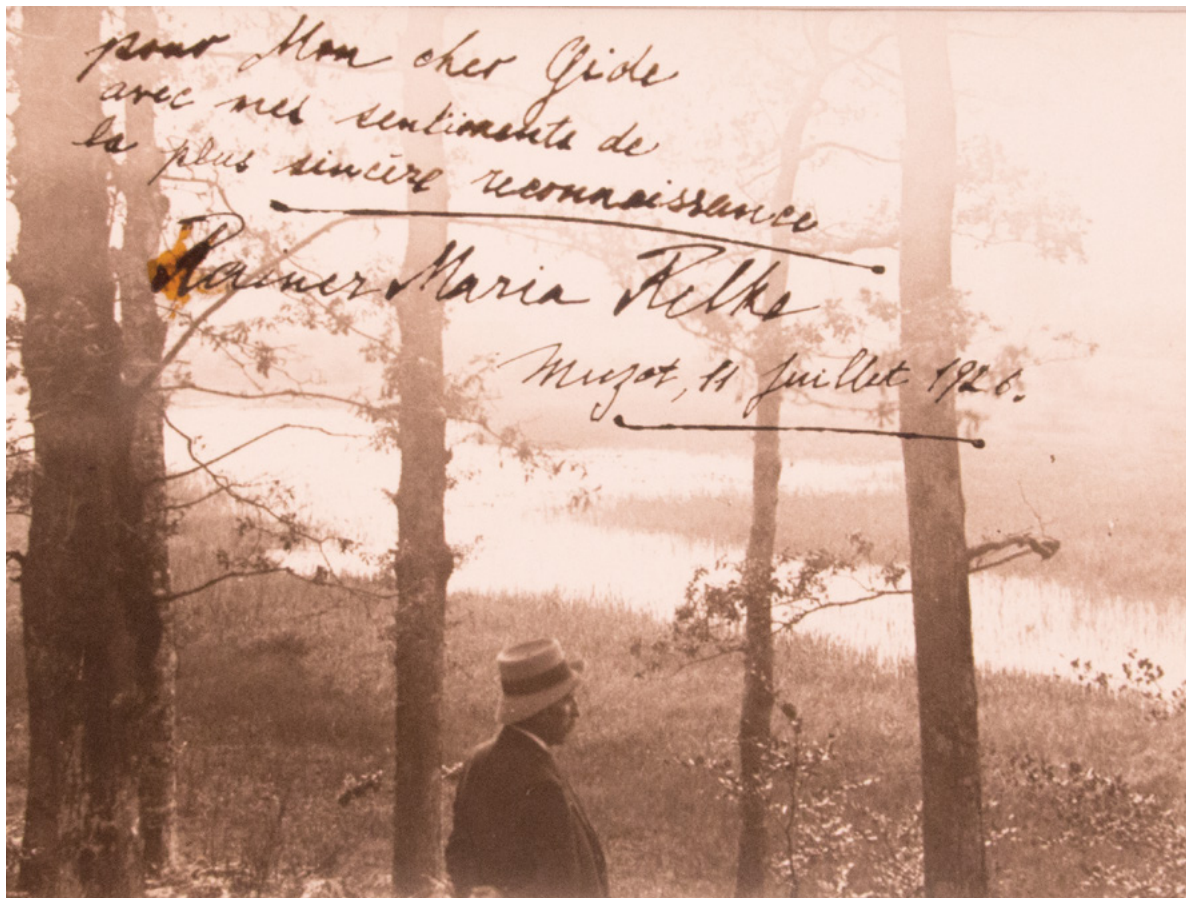 pour Mon cher Gide
avec mes sentiments de
la plus sincère reconnaissance
Rainer Maria Rilke
Muzot, 11 Juillet 1926.